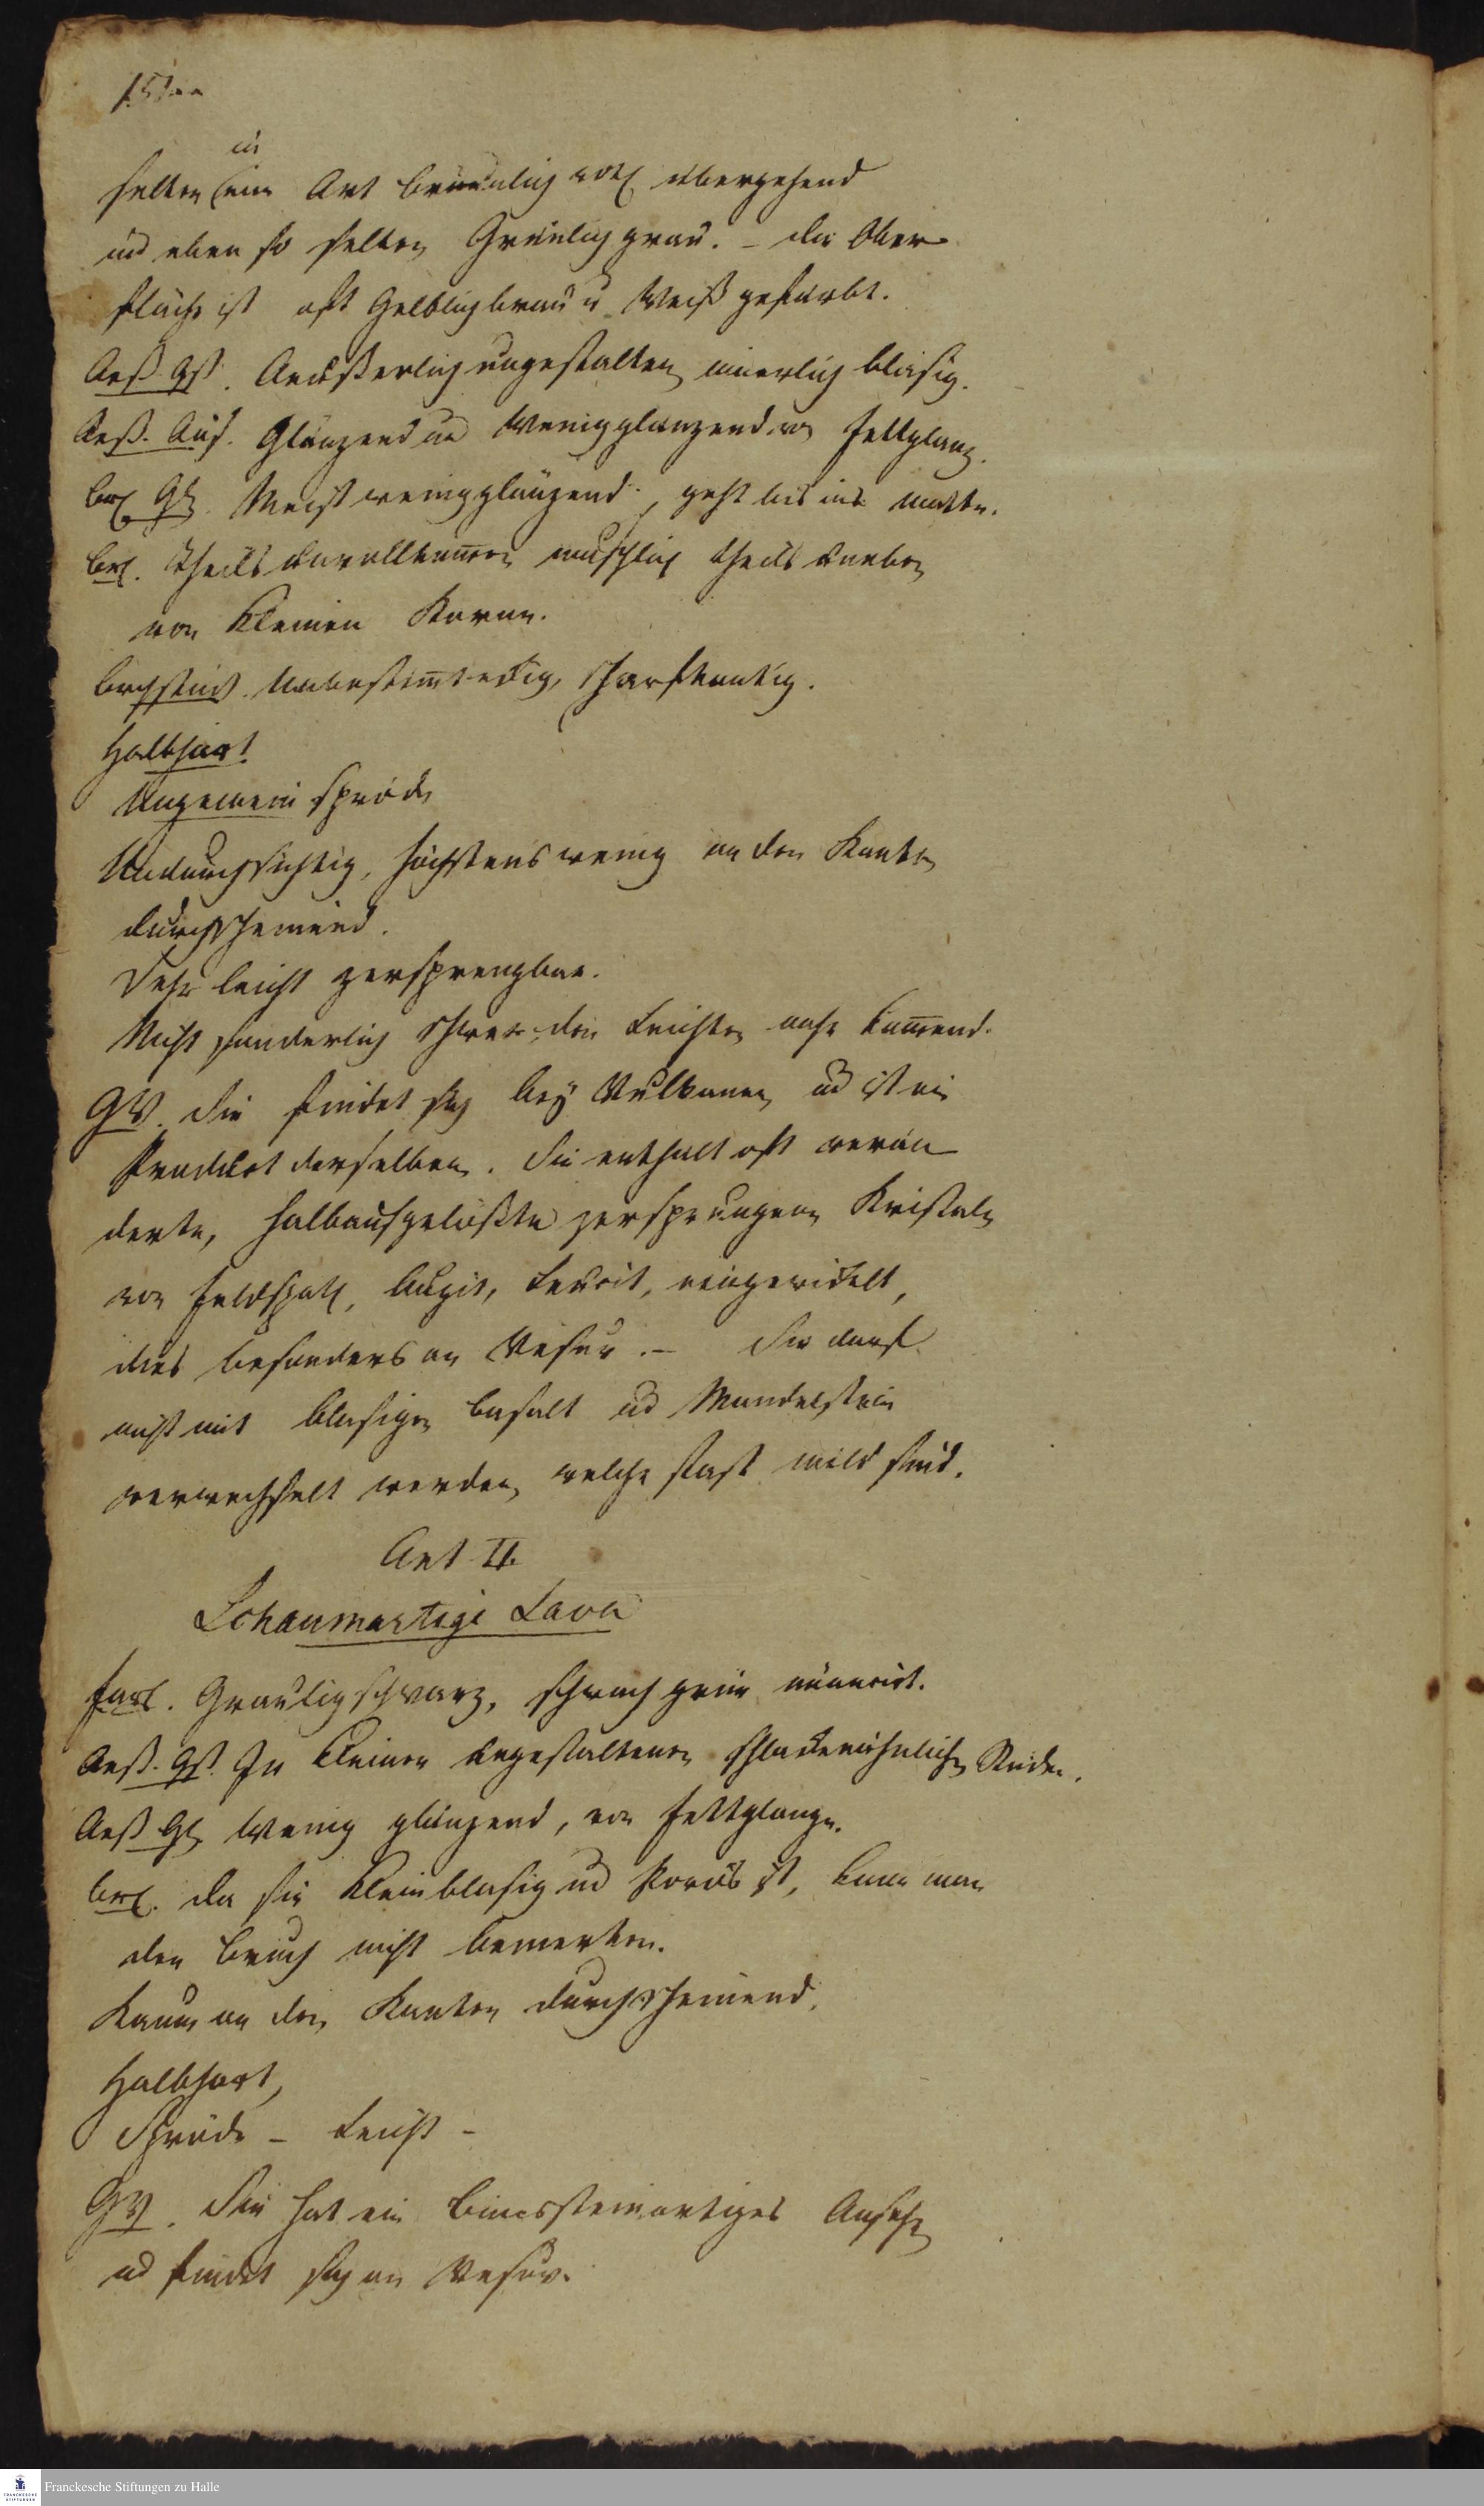 in
selten eine Art bräunlich roth übergehend
und eben so selten Grünlich grau. – die Ober
fläche ist oft Gelblichbraun u Weiß gefärbt.
Aeß. Gst. Aeußerlich ungestalten innerlich blasig.
Aeß. Aus. Glänzend und Wenigglanzend von Fettglanz.
Br. Glz. Meist wenigglänzend, geht bis ins matte.
Br. theils unvollkom̄en muschlich theils uneben
von Kleinen Korne.
Brchstück. Unbestim̄teckig, scharfkantig.
Halbhart
Ungemein spröde
Undurchsichtig, höchstens wenig an den Kanten
durchscheinend.
Sehr leicht zersprengbar.
Nicht sonderlich schwer, den Leichten nahe kom̄end.
GV. Sie findet sich bey Vulkanen und ist ein
Product derselben. Sie enthält oft verän
derte, halbaufgelößte zersprungene Kristaln
von Feldspath, Augit, Leucit, eingewickelt,
dies besonders am Vesuv. – Sie darf
nicht mit blasigen Basalt und Mandelstein
verwechselt werden, welche fast mild sind.
Art II.
Schaumartige Lava
Farb. Graulichschwarz, schwach grün nüancirt.
Aeß. Gst. In Kleinen ungestaltenen schlackenähnlichen Stücken.
Aeß Glz Wenig glänzend, von Fettglanze.
Br. da sie Kleinblasig und Porös ist, kann man
den Bruch nicht bemerken.
Kaum an den Kanten durchscheinend.
Halbhart,
Spröde – Leicht –
GV. Sie hat ein Bimssteinartiges Ansehn
und findet sich am Vesuv.
Franckesche Stiftungen zu Halle